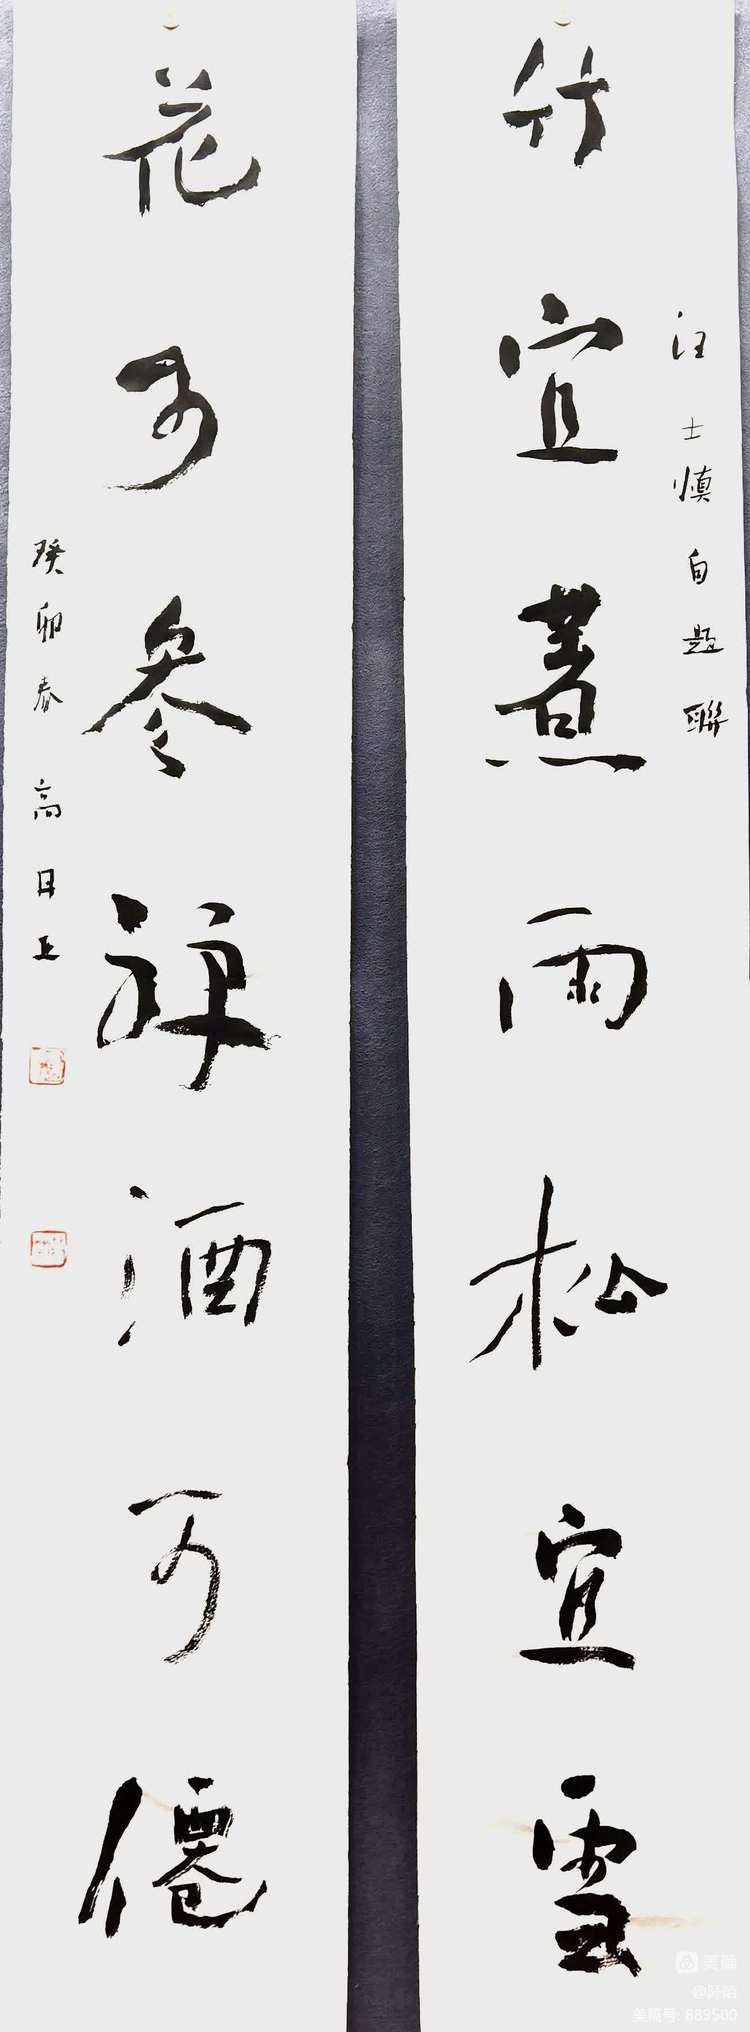 竹宜著雨松宜雪
汪士慎自題聯
花可參禅酒可僊
癸卯春 高日正
美篇
美篇号: 889500